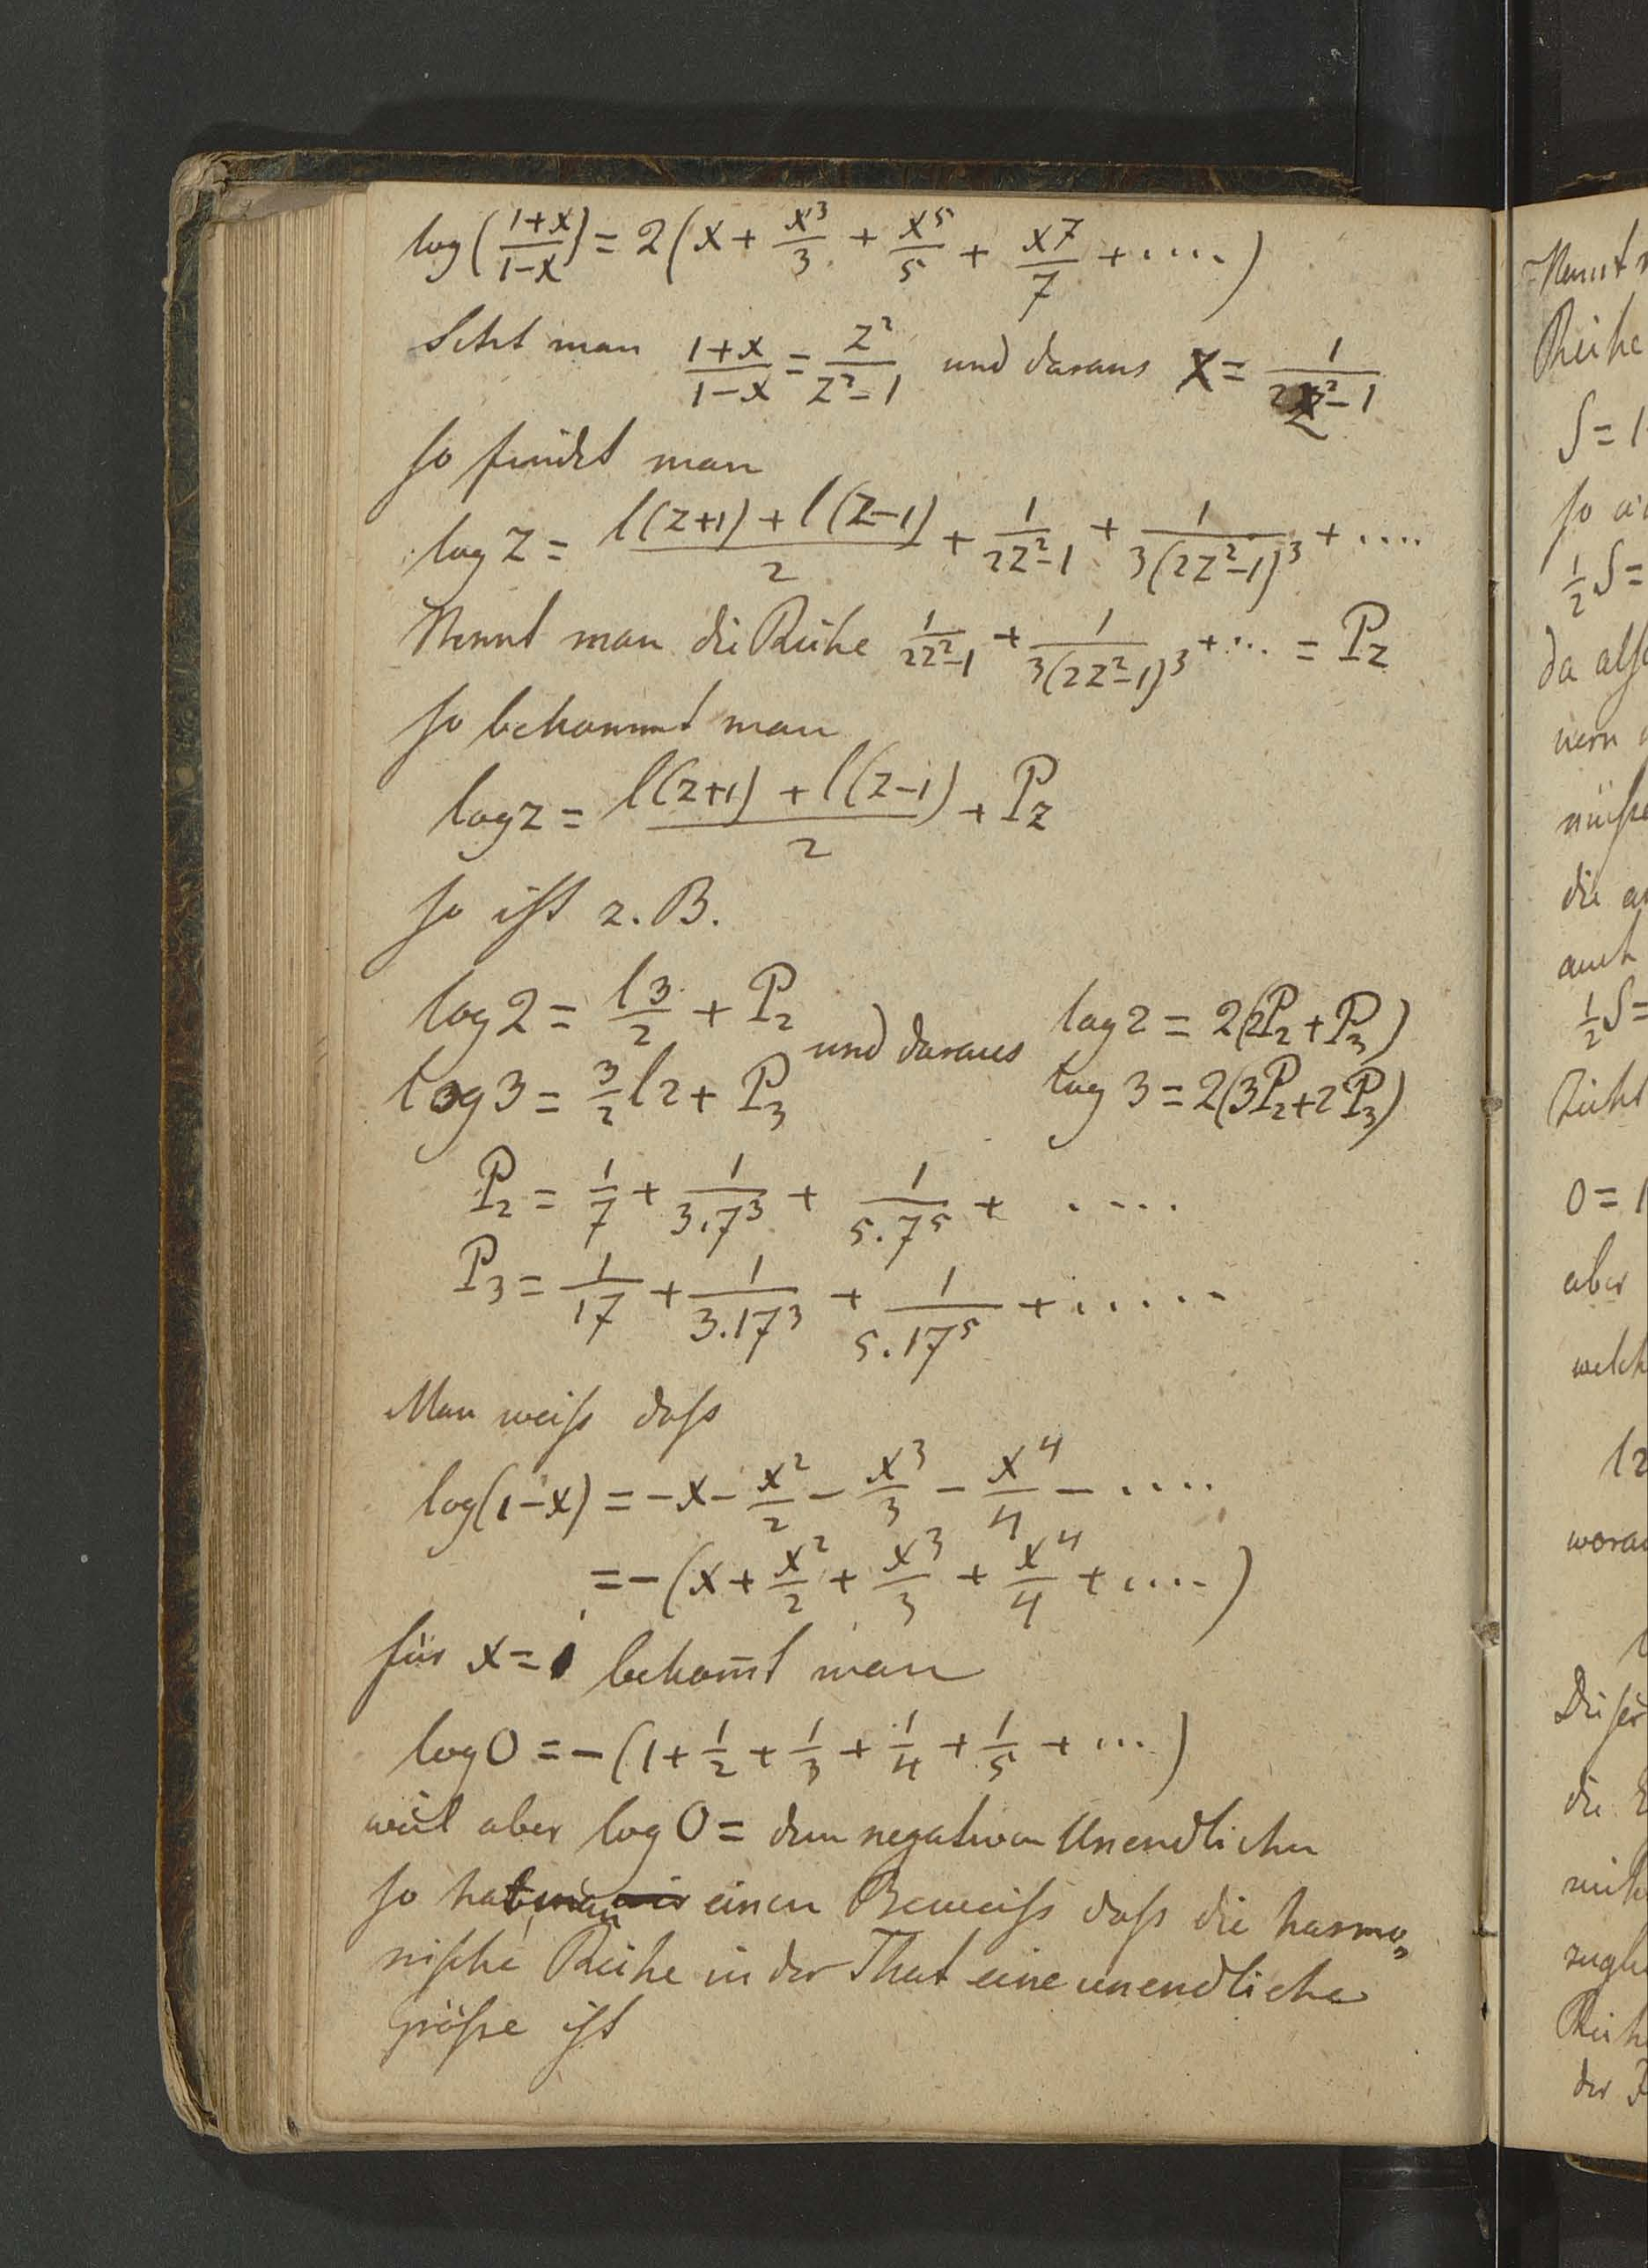 log(1+x/1-x) = 2(x + x³/3 + x⁵/5 + x⁷/7 + ....)
Setzt man 1+x/1-x = z²/z²-1 und daraus x = 1/2z²-1
so findet man
log z = l(z+1) + l(z-1)/2 + 1/2z²-1 + 1/3(2z²-1)³ + ....
Nennt man die Reihe 1/2z²-1 + 1/3(2z²-1)³ + ... = P_z
so bekommt man
log z = l(z+1) + l(z-1)/2 + P_z
so ist z.B.
log 2 = l3/2 + P₂ und daraus log 2 = 2(2P₂ + P₃)
log 3 = 3/2 l2 + P₃ log 3 = 2(3P₂ + 2P₃)
P₂ = 1/7 + 1/3.7³ + 1/5.7⁵ + ....
P₃ = 1/17 + 1/3.17³ + 1/5.17⁵ + .....
Man weiß daß
log(1-x) = -x - x²/2 - x³/3 - x⁴/4 - ....
= -(x + x²/2 + x³/3 + x⁴/4 + ....)
für x = 1 bekom̄t man
log 0 = -(1 + 1/2 + 1/3 + 1/4 + 1/5 + ...)
weil aber log 0 = dem negativen Unendlichen
so hat man einen Beweiß daß die harmo„
nische Reihe in der That eine unendliche
Größe ist
Nennt
Reihe
S = 1
½S =
da also
die
auch
½S =
0 = 1
aber
l2
Dieser
die
der